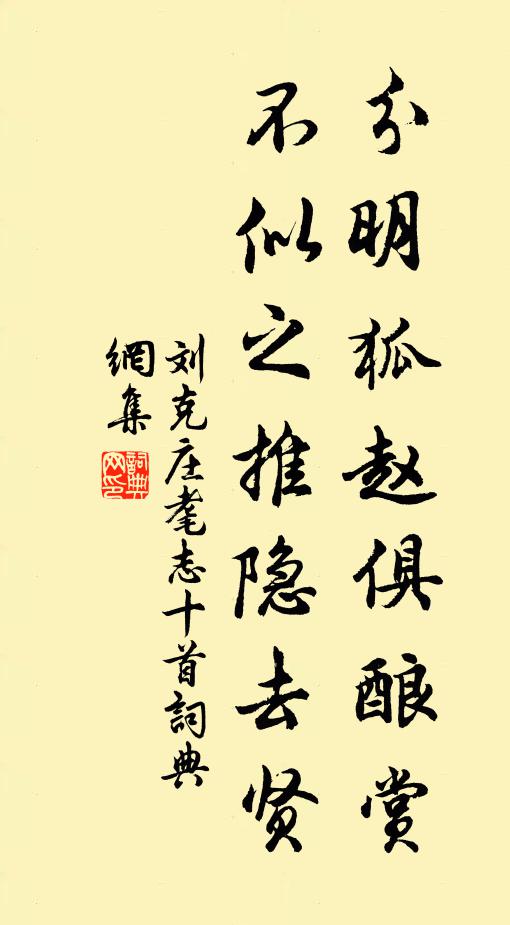 分明狐赵俱酿赏
不似之推隐去贤
刘克庄耄志十首词典
網集
詞典
网印